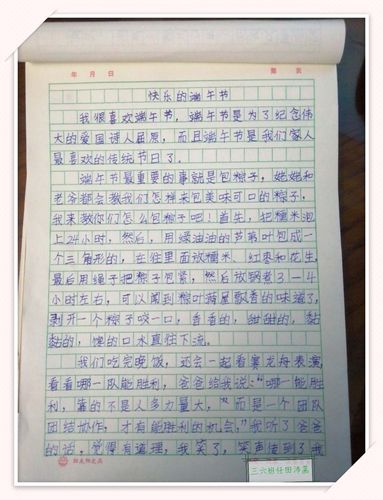 年 月 日
第 页
快乐的端午节
我很喜欢端午节，端午节是为了纪念伟
大的爱国诗人屈原，而且端午节是我们家人
最喜欢的传统节日了。
端午节最重要的事就是包粽子，姥姥和
老爷都会教我们怎样来包美味可口的粽子，
我来教你们怎么包粽子吧！首先，把糯米泡
上24小时，然后，用绿油油的芦苇叶包成一
个三角形的，在往里面放糯米、红枣和花生，
最后用绳子把粽子包紧，然后放锅煮3—4
小时左右，可以闻到粽叶满屋飘香的味道了，
剥开一个粽子咬一口，香香的，甜甜的，黏
黏的，馋的口水直往下流。
我们吃完晚饭，还会一起看赛龙舟表演，
看看哪一队能胜利，爸爸给我说：“哪一能胜
利，靠的不是人多力量大，而是一个团队
团结协作，才有能胜利的机会。”我听了爸爸
的话，觉得有道理，我笑了，笑声传到了我
三六班任田沛菡